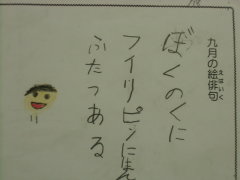 九月の絵俳句
えはいく
ぼくのくに
フイリピンにほん
ふたつある